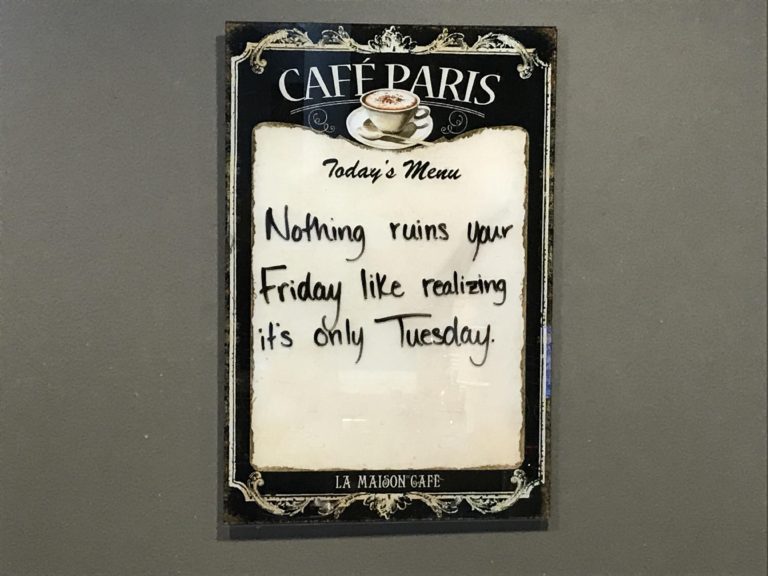 CAFÉ PARIS
Today's Menu
Nothing ruins your
Friday like realizing
it's only Tuesday.
LA MAISON CAFE